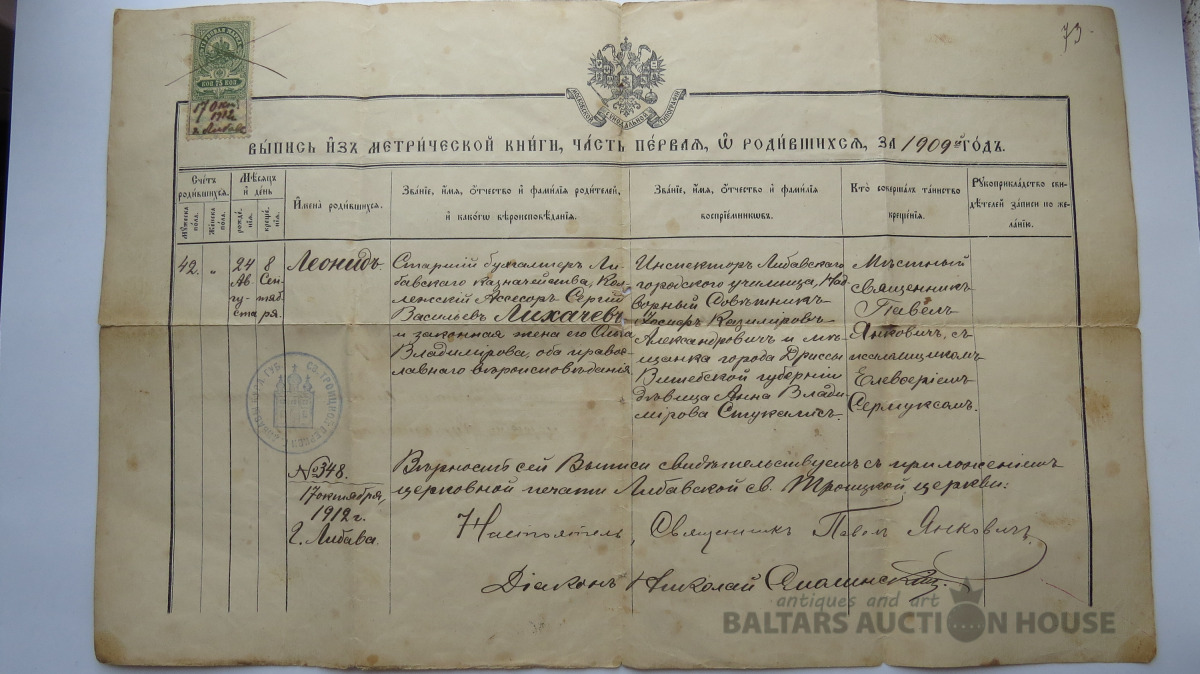 73.
ГЕРБОВАЯ МАРКА
КОП. 75 КОП.
17 Окт.
1912
г. Либава
МОСКОВСКОЙ СѴНОДАЛЬНОЙ ТИПОГРАФІИ
ВЫПИСЬ ИЗЪ МЕТРИЧЕСКОЙ КНИГИ, ЧАСТЬ ПЕРВАЯ, Ѡ РОДИВШИХСЯ, ЗА 1909й ГОДЪ.
Счетъ родившихся.
Мужеска пола.
Женска пола.
Мѣсяцъ и день
рожденія.
крещенія.
Имена родившихся.
Званіе, имя, отчество и фамилія родителей,
и какогѡ вѣроисповѣданія.
Званіе, имя, отчество и фамилія
воспріемниковъ.
Кто совершалъ таинство
крещенія.
Рукоприкладство сви-
дѣтелей записи по же-
ланію.
42.
"
24
Ав
гу-
ста
8
Сен
тяб
ря.
Леонидъ
Старшій бухгалтеръ Ли-
бавскаго казначейства, Кол-
лежскій Асесоръ Сергій
Васильевъ Лихачевъ
и законная жена его Ольга
Владимірова, оба право-
славнаго вѣроисповѣданія
Инспекторъ Либавскаго
городского училища, Над-
ворный Совѣтникъ
Іосифъ Казиміровъ
Александровичъ и мѣ-
щанка города Дриссы
Витебской губерніи
дѣвица Анна Влади-
мірова Стукалисъ.
Мѣстный
священникъ
Павелъ
Янковичъ, съ
псаломщикомъ
Елевѳеріемъ
Сермуксомъ.
№ 348.
17 октября,
1912 г.
г. Либава.
Вѣрность сей Выписи свидѣтельствуемъ съ приложеніемъ
церковной печати Либавской св. Троицкой церкви:
Настоятель, Священникъ Павелъ Янковичъ.
Діаконъ Николай
antiques and art
BALTARS AUCTION HOUSE